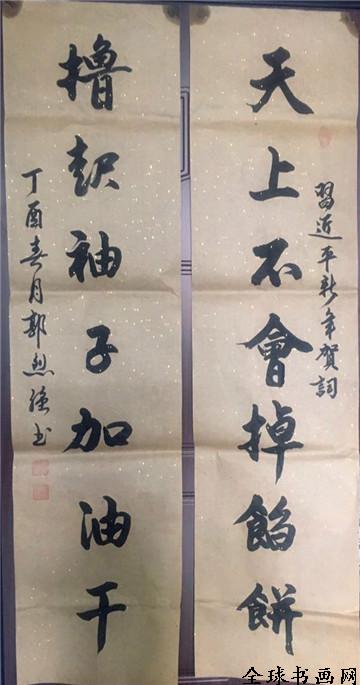 天上不會掉餡餅
習近平新年賀詞
擼起袖子加油干
丁酉春月郭烈強书
全球书画网